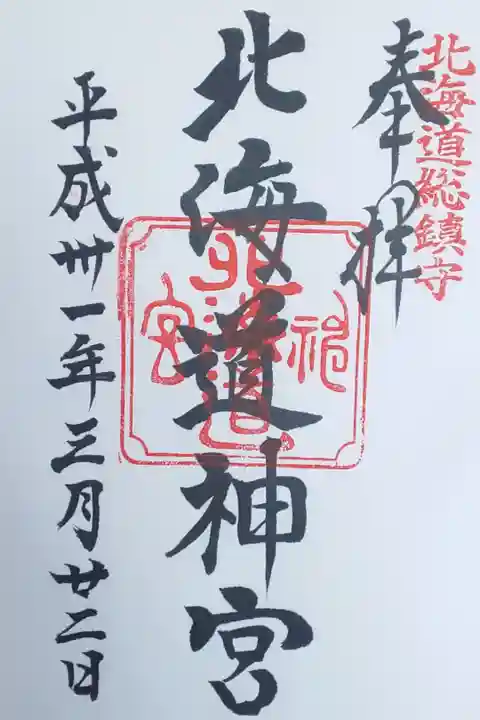 北海道総鎮守
奉拝
北海道神宮
北海道神宮
平成卅一年三月廿二日